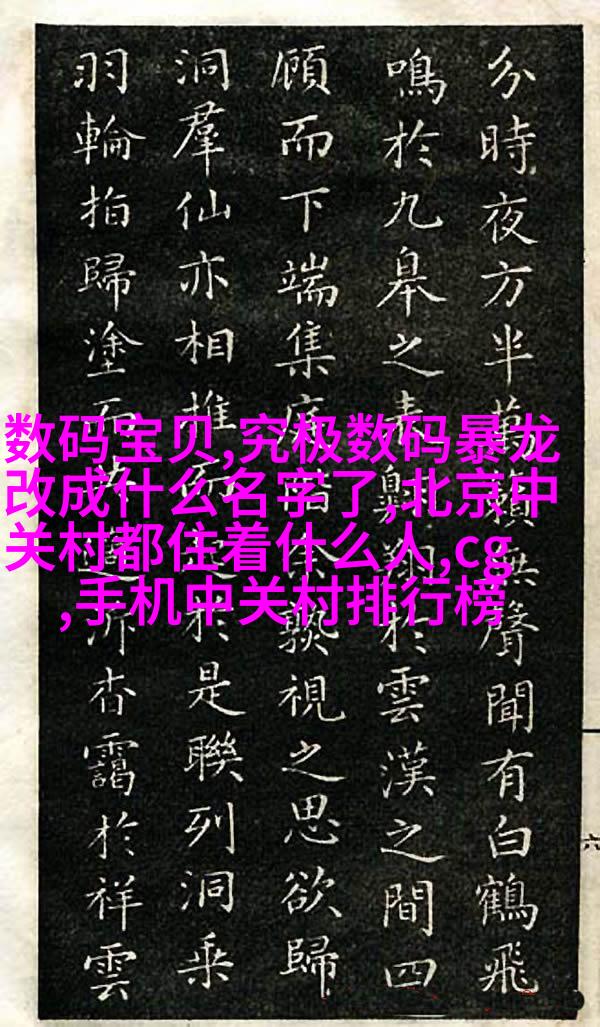 数码宝贝,究极数码暴龙
改成什么名字了,北京中
关村都住着什么人,cg
,手机中关村排行榜
分時夜方半聲聞有白鶴飛
鳴於九皋之表翔於雲漢之間四
顧而下端集庭階熟視之思欲歸
洞羣仙亦相推於是聯列洞乘
羽輪拍歸塗而杳靄於祥雲
六